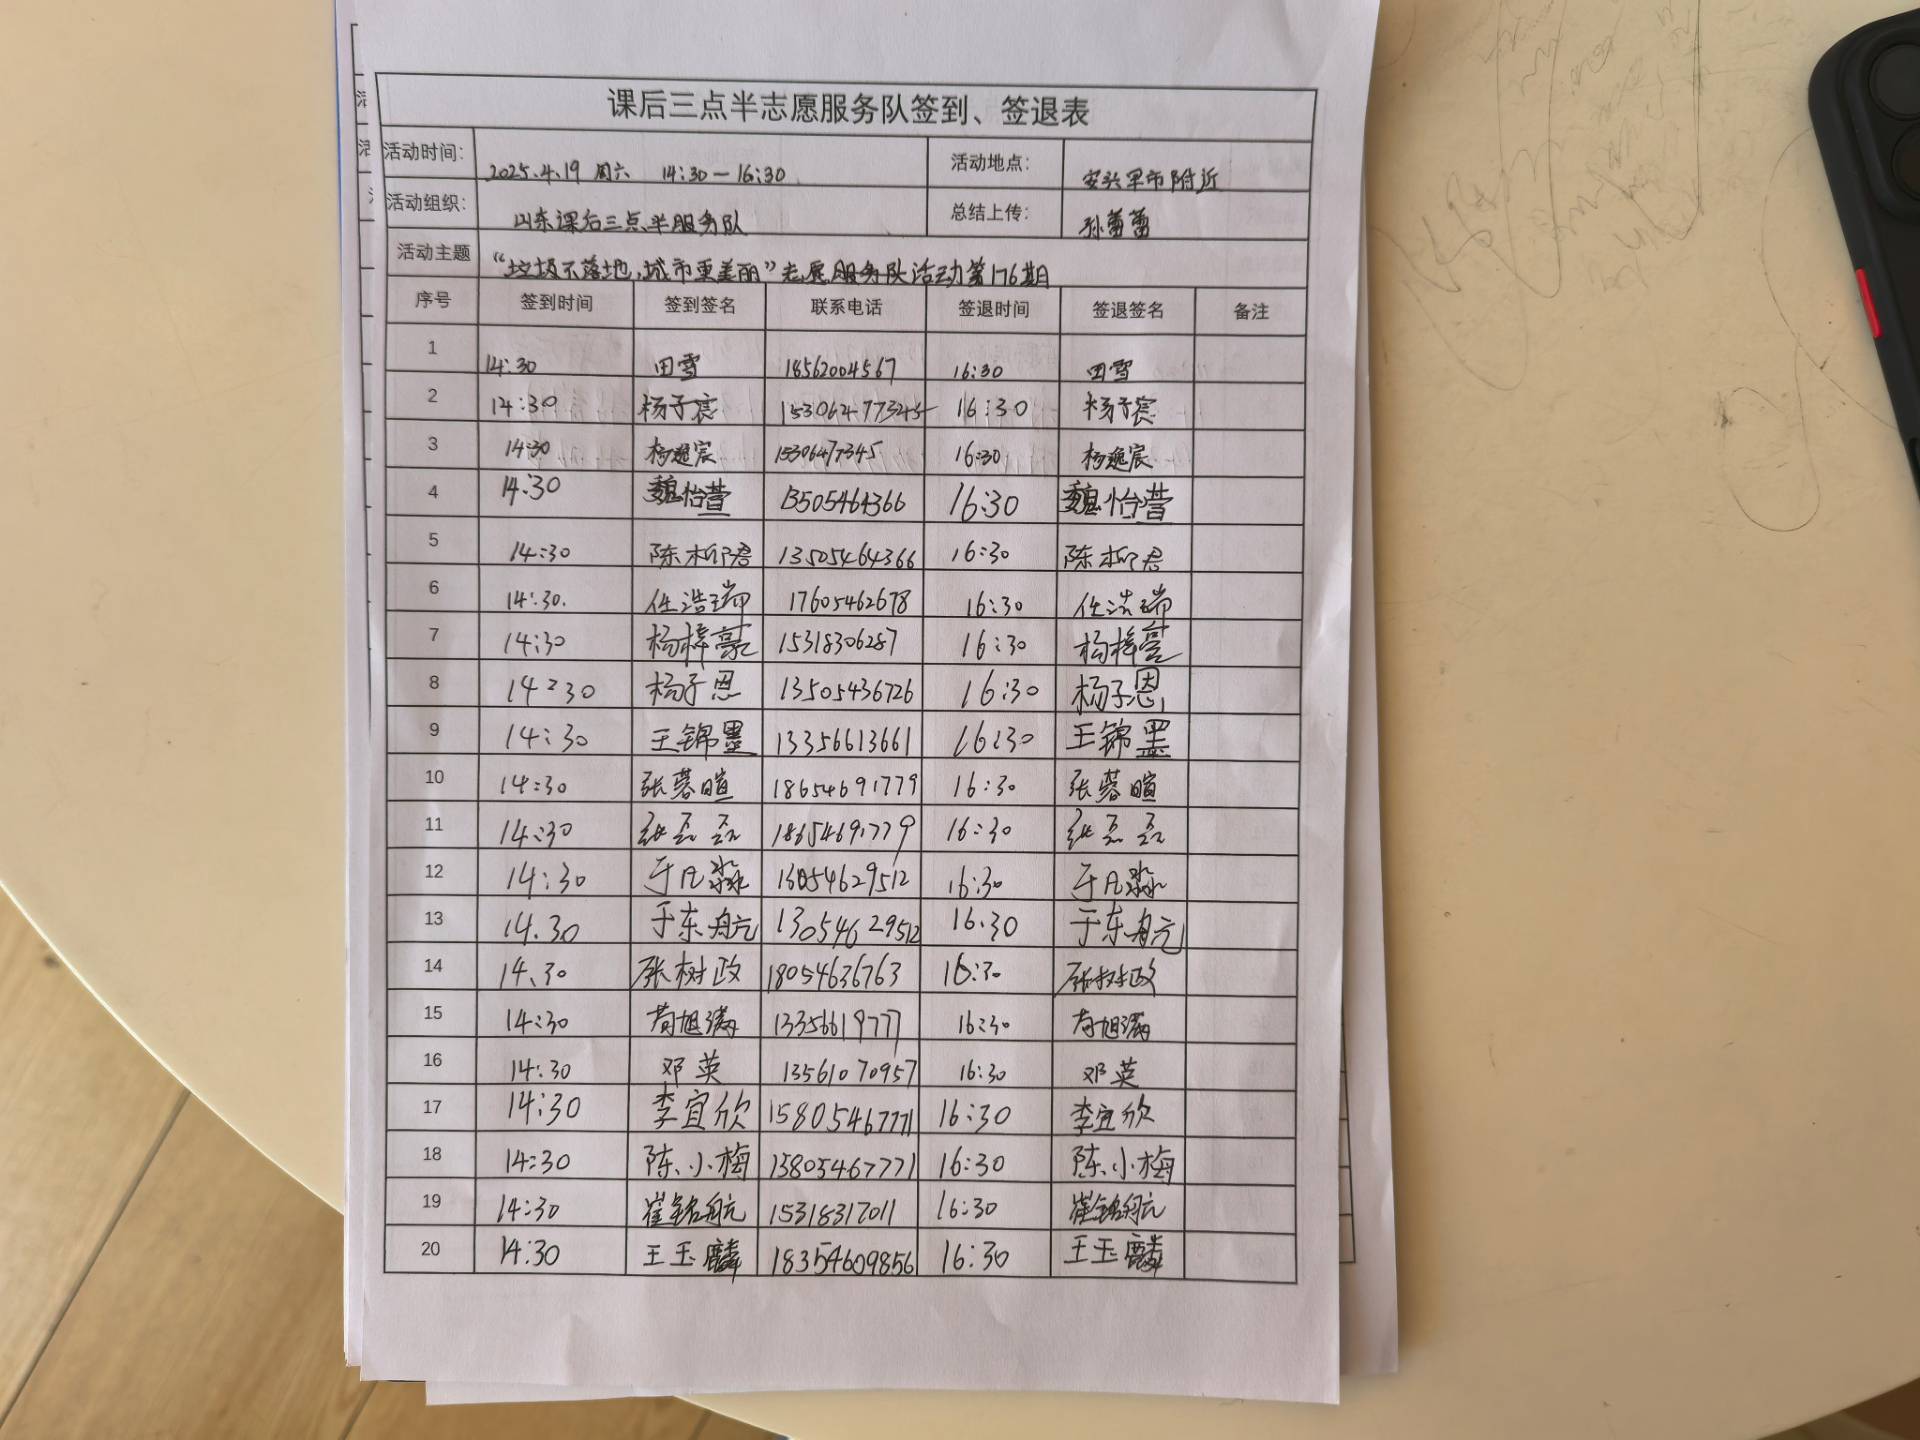 课后三点半志愿服务队签到、签退表
活动时间: 2025.4.19 周六 14:30—16:30 活动地点: 安兴早市附近
活动组织: 山东课后三点半服务队 总结上传: 孙蕾蕾
活动主题 “垃圾不落地,城市更美丽”志愿服务队活动第176期
序号 签到时间 签到签名 联系电话 签退时间 签退签名 备注
1 14:30 田雪 18562004567 16:30 田雪
2 14:30 杨子宸 15306477345 16:30 杨子宸
3 14:30 杨逸宸 15306477345 16:30 杨逸宸
4 14:30 魏怡萱 13505464366 16:30 魏怡萱
5 14:30 陈柳君 13505464366 16:30 陈柳君
6 14:30. 任浩瑞 17605462678 16:30 任浩瑞
7 14:30 杨梓豪 15318306287 16:30 杨梓豪
8 14:30 杨子恩 13505436726 16:30 杨子恩
9 14:30 王锦墨 13356613661 16:30 王锦墨
10 14:30 张蓉暄 18654691779 16:30 张蓉暄
11 14:30 张磊磊 18654691779 16:30 张磊磊
12 14:30 于凡淼 13054629512 16:30 于凡淼
13 14.30 于东航 13054629512 16.30 于东航
14 14.30 张树政 18054636763 16:30 张树政
15 14:30 苟旭满 13356619777 16:30 苟旭满
16 14:30 邓英 13561070957 16:30 邓英
17 14:30 李宜欣 15805467771 16:30 李宜欣
18 14:30 陈小梅 15805467771 16:30 陈小梅
19 14:30 崔铭航 15318317011 16:30 崔铭航
20 14:30 王玉麟 18354609856 16:30 王玉麟